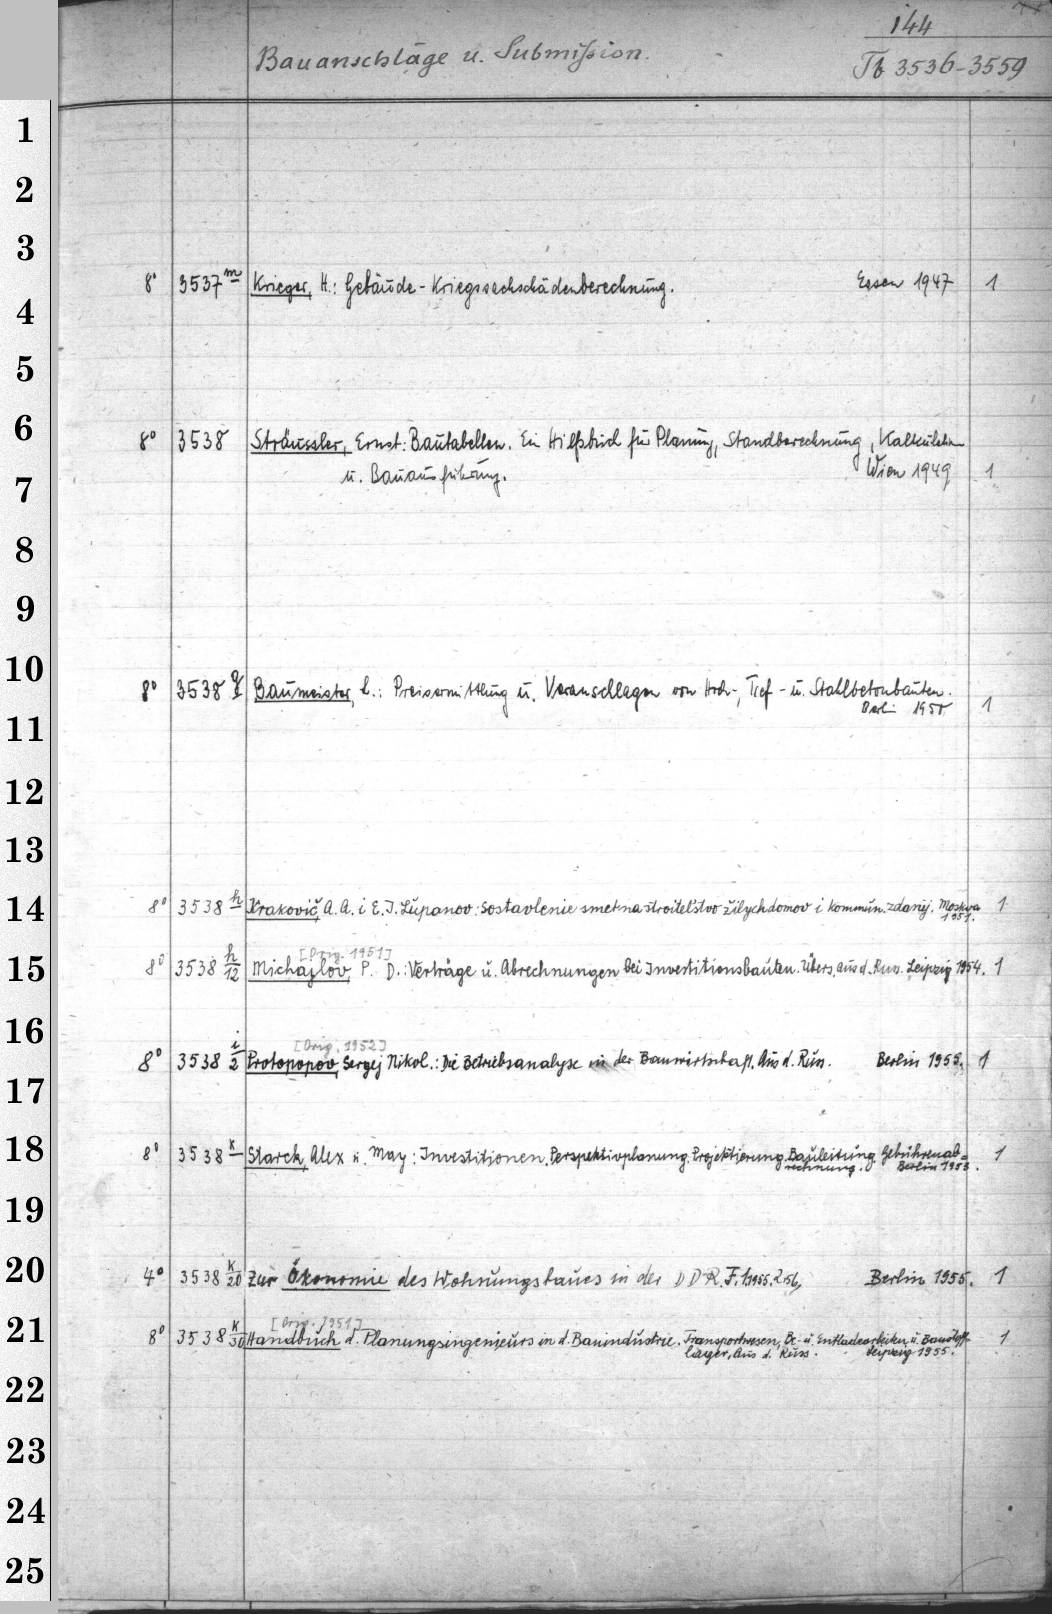 144
Bauanschläge u. Submission.
Tb 3536-3559
1
2
3
8° 3537 m Krieger, H.: Gebäude-Kriegssachschädenberechnung. Essen 1947 1
4
5
6
8° 3538 Sträussler, Ernst: Bautabellen. Ein Hilfsbuch für Planung, Standberechnung, Kalkulation
u. Bauausführung. Wien 1949 1
7
8
9
10
8° 3538 g Baumeister, L.: Preisermittlung u. Veranschlagen von Hoch-, Tief- u. Stahlbetonbauten.
Berlin 1950 1
11
12
13
14
8° 3538 h Krakovič, A.A. i E.I. Lupanov: Sostavlenie smet na stroitel'stvo žilych domov i kommun. zdanij. Moskva 1
1951.
[Orig. 1951]
15
8° 3538 h/12 Michajlov, P. D.: Verträge u. Abrechnungen bei Investitionsbauten. Übers. aus d. Russ. Leipzig 1954. 1
16
[Orig. 1952]
8° 3538 i/2 Protopopov, Sergej Nikol.: Die Betriebsanalyse in der Bauwirtschaft. Aus d. Russ. Berlin 1955. 1
17
18
8° 3538 k Starck, Alex u. May: Investitionen. Perspektivplanung. Projektierung. Bauleitung. Gebührenab- 1
rechnung. Berlin 1953.
19
20
4° 3538 k/20 Zur Ökonomie des Wohnungsbaues in der DDR. F. 1.1955. 2.56, Berlin 1955. 1
[Orig. 1951]
21
8° 3538 k/30 Handbuch d. Planungsingenieurs in d. Bauindustrie. Transportwesen, Be- u. Entladearbeiten u. Baustoff- 1
lager. Aus d. Russ. Leipzig 1955.
22
23
24
25